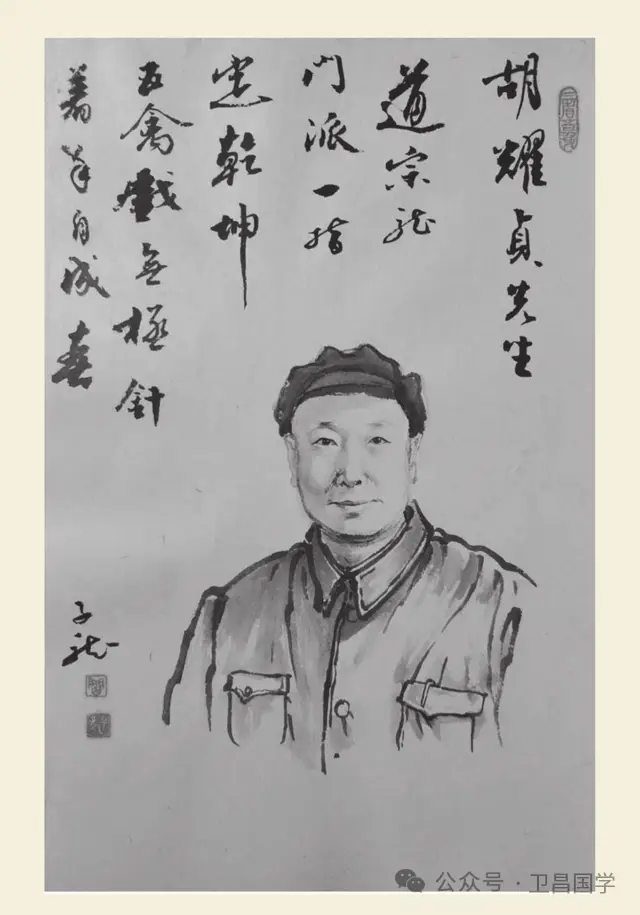 胡耀貞先生
道宗龙
門派一指
定乾坤
五禽戲无極針
着手自成春
子龙
公众号·卫昌国学